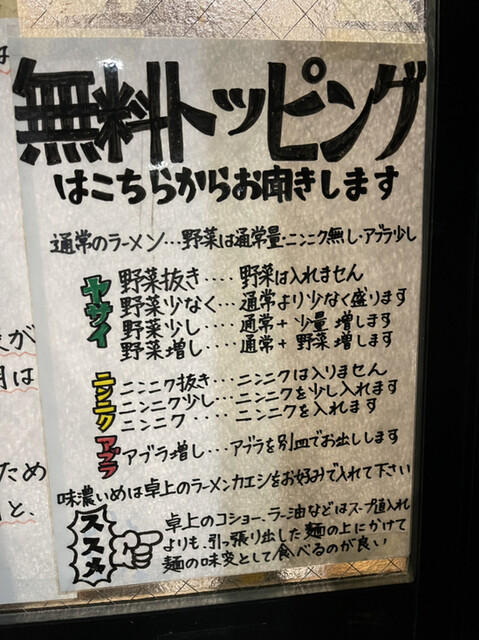 無料トッピング
はこちらからお聞きします
通常のラーメン…野菜は通常量・ニンニク無し・アブラ少し
ヤサイ
野菜抜き‥‥野菜は入れません
野菜少なく‥通常より少なく盛ります
野菜少し‥‥通常+少量増します
野菜増し‥‥通常+野菜増します
ニンニク
ニンニク抜き‥‥ニンニクは入りません
ニンニク少し‥‥ニンニクを少し入れます
ニンニク‥‥ニンニクを入れます
アブラ
アブラ増し‥‥アブラを別皿でお出しします
味濃いめは卓上のラーメンカエシをお好みで入れて下さい
ススメ
卓上のコショー、ラー油などはスープ直入れ
よりも、引っ張り出した麺の上にかけて
麺の味変として食べるのが良い